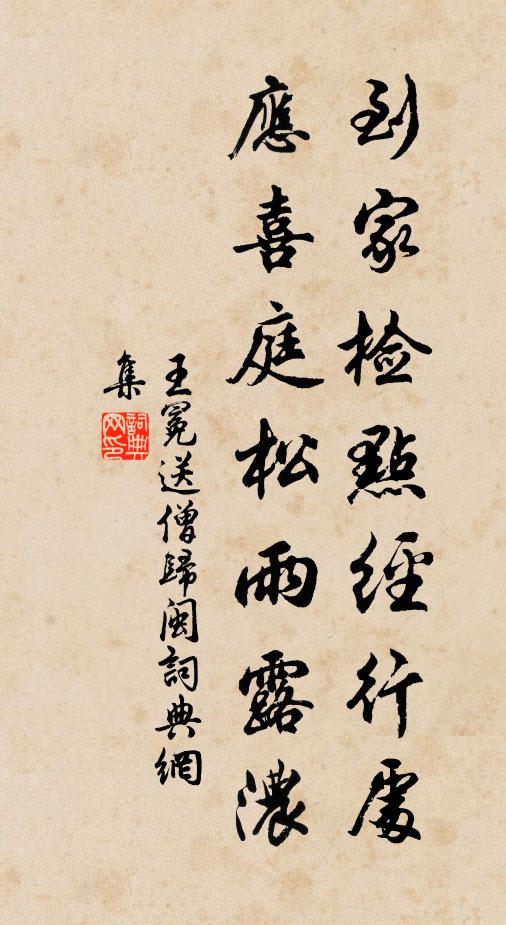 到家检點經行處
應喜庭松雨露濃
王冕送僧歸閩詞典網
集
詞典网印